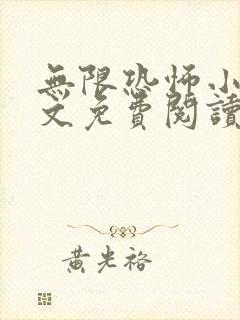 無限恐怖小
文免費閱讀
黃光裕